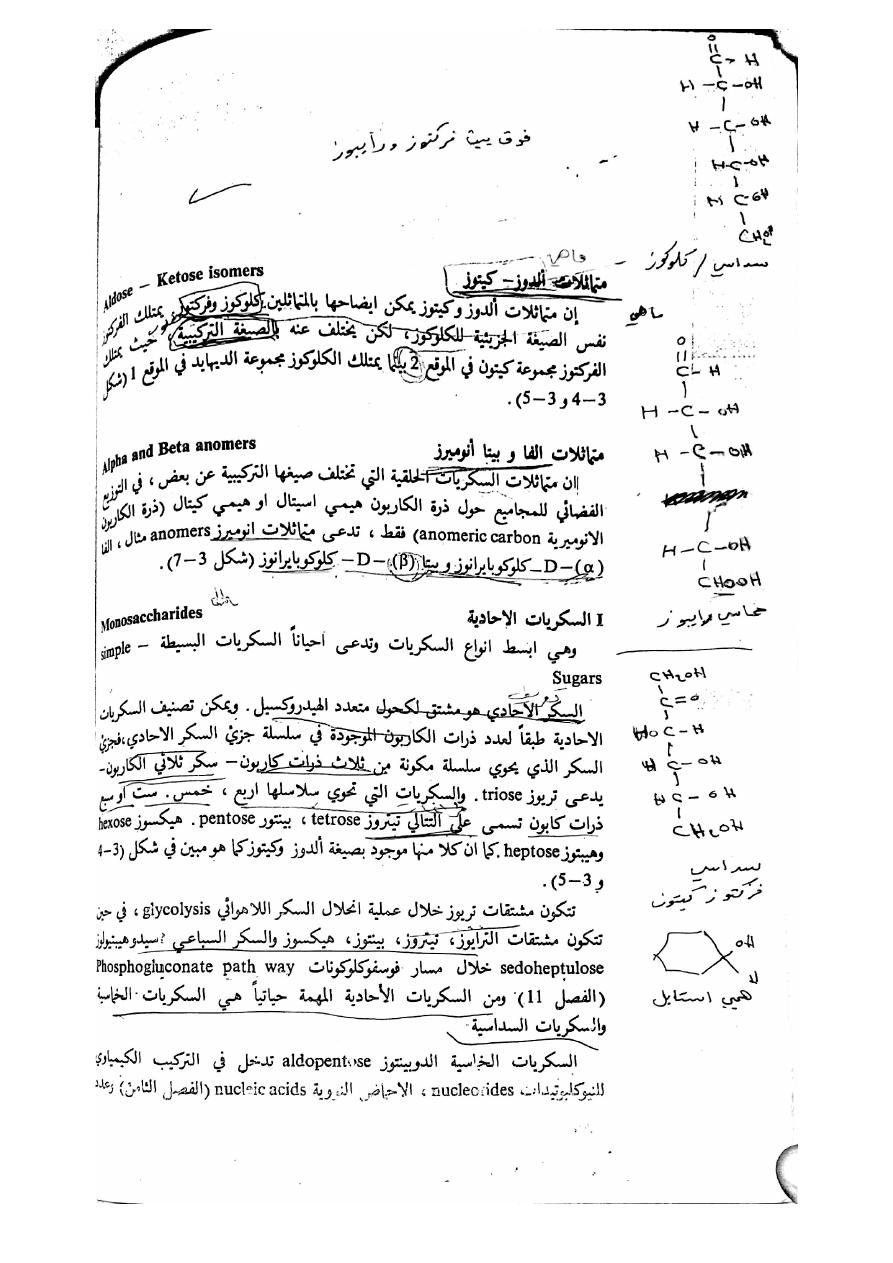 فوق بيث فركتوز ورايبوز
متماثلات ألدوز– كيتوز Aldose – Ketose isomers
إن متماثلات ألدوز وكيتوز يمكن ايضاحها بالمتماثلين كلوكوز وفركتوز، يمتلك الفركتوز
نفس الصيغة الجزيئية للكلوكوز، لكن يختلف عنه بالصيغة التركيبية، حيث يمتلك
الفركتوز مجموعة كيتون في الموقع 2 بينما يمتلك الكلوكوز مجموعة الديهايد في الموقع 1 (شكل
3–4 و 3–5).
متماثلات الفا و بيتا أنوميرز Alpha and Beta anomers
إن متماثلات السكريات الحلقية التي تختلف صيغها التركيبية عن بعض، في التوزيع
الفضائي للمجاميع حول ذرة الكاربون هيمي اسيتال او هيمي كيتال (ذرة الكاربون
الانوميرية anomeric carbon) فقط، تدعى متماثلات انوميرز anomers مثال، الفا
(α)–D–كلوكوبايرانوز و بيتا (β)–D–كلوكوبايرانوز (شكل 3–7).
I السكريات الاحادية Monosaccharides
وهي ابسط انواع السكريات وتدعى احياناً السكريات البسيطة – simple
Sugars
السكر الأحادي هو مشتق لكحول متعدد الهيدروكسيل. ويمكن تصنيف السكريات
الاحادية طبقاً لعدد ذرات الكاربون الموجودة في سلسلة جزئ السكر الاحادي، فجزئ
السكر الذي يحوي سلسلة مكونة من ثلاث ذرات كاربون– سكر ثلاثي الكاربون–
يدعى تريوز triose. والسكريات التي تحوي سلاسلها اربع، خمس. ست او سبع
ذرات كابون تسمى على التتالي تيتروز tetrose، بينتور pentose. هيكسوز hexose
وهيبتوز heptose. كما ان كلا منها موجود بصيغة ألدوز وكيتوز كما هو مبين في شكل (3–4
و 3–5).
تتكون مشتقات تريوز خلال عملية انحلال السكر اللاهوائي glycolysis، في حين
تتكون مشتقات الترايوز، تيتروز، بينتوز، هيكسوز والسكر السباعي سيدوهيبتيولوز
sedoheptulose خلال مسار فوسفوكلوكونات Phosphogluconate path way
(الفصل 11) ومن السكريات الأحادية المهمة حياتياً هي السكريات الخاسية
والسكريات السداسية
السكريات الخاسية الدوبينتوز aldopentose تدخل في التركيب الكيمياوي
للنيوكليوتيدات nucleotides، الاحماض النووية nucleic acids (الفصل الثامن) وعدد
O
C – H
H – C – OH
H – C – OH
H – C – OH
H C – OH
CH₂OH
سداسي / كلوكوز
O
C – H
H – C – OH
H – C – OH
H – C – OH
CHOOH
خماسي رايبوز
CH₂OH
C = O
HO C – H
H C – OH
H C – OH
CH₂OH
سداسي
فركتوز كيتون
OH
همي استايل